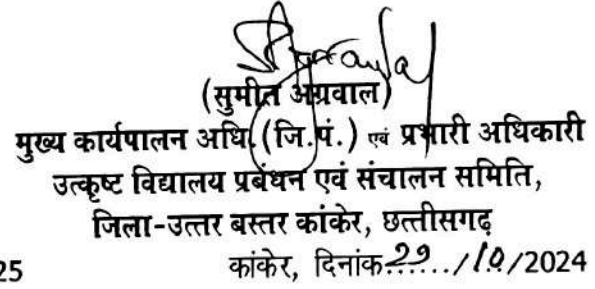 (सुमीत अग्रवाल)
मुख्य कार्यपालन अधि. (जि.पं.) एवं प्रभारी अधिकारी
उत्कृष्ट विद्यालय प्रबंधन एवं संचालन समिति,
जिला-उत्तर बस्तर कांकेर, छत्तीसगढ़
25 कांकेर, दिनांक 29/10/2024